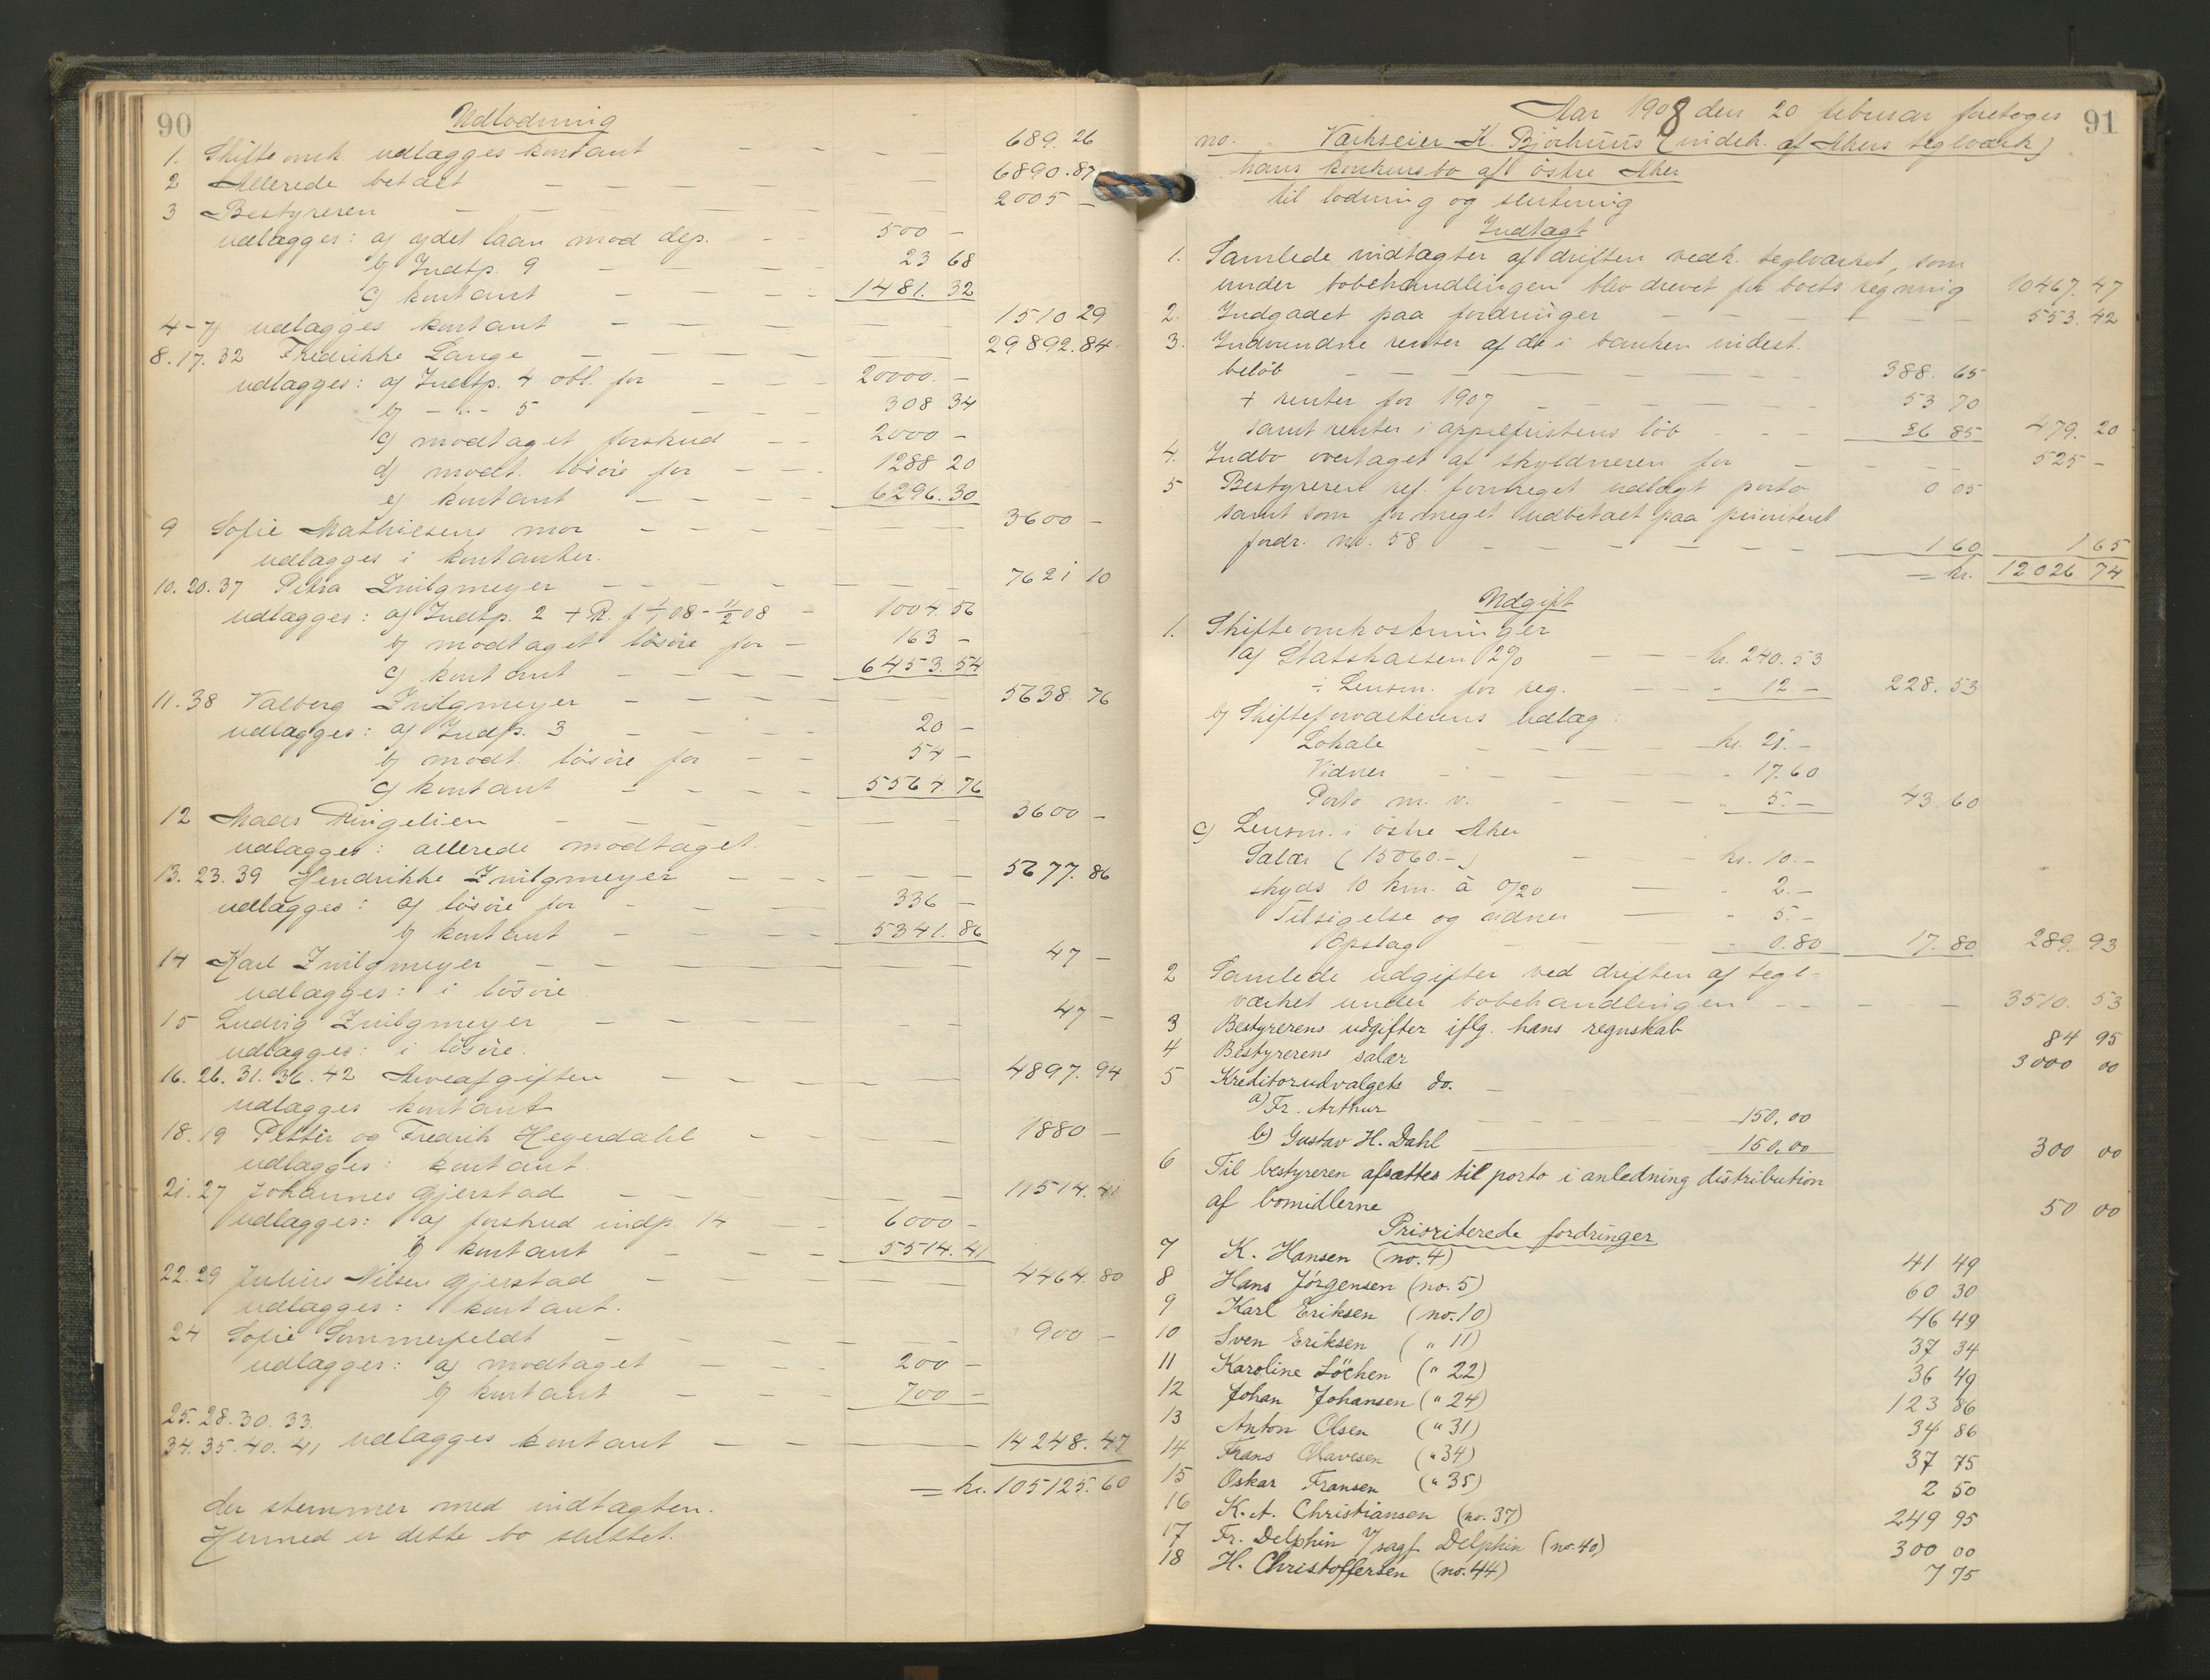 90
Udlodning
1. Skifteomk. udlægges kontant — — — 689.26
2 Allerede betalt — — — 6890.87
3 Bestyreren — — — 2005 —
udlægges: a) ydet laan mod dep. — 500 —
b) Indtp. 9 — — — 23 68
c) kontant — — — 1481.32
4-7) udlægges kontant — — — 1510 29
8.17.32 Fredrikke Lange — — — 29892.84
udlægges: a) Indtp. 4 obl. for — — 20000.—
b) — " — 5 — — — 308 34
c) modtaget forskud — — 2000 —
d) modt. løsøre for — — 1288 20
e) kontant — — — 6296.30
9 Sofie Mathiesens mor — — — 3600 —
udlægges i kontanter.
10.20.37 Petra Zwilgmeyer — — — 7621 10
udlægges: a) Indtp. 2 + R. f 1/1 08 - 11/2 08 — 1004.56
b) modtaget løsøre for — 163 —
c) kontant — — — 6453.54
11.38 Valborg Zwilgmeyer — — — 5638.76
udlægges: a) Indtp. 3 — — — 20 —
b) modt. løsøre for — — 54 —
c) kontant — — — 5564.76
12 Mads Ringelien — — — 3600 —
udlægges: allerede modtaget.
13.23.39 Hendrikke Zwilgmeyer — — — 5677.86
udlægges: a) løsøre for — — 336 —
b) kontant — — — 5341.86
14 Karl Zwilgmeyer — — — 47 —
udlægges: i løsøre
15 Ludvig Zwilgmeyer — — — 47 —
udlægges: i løsøre.
16.26.31.36.42 Arveafgiften — — — 4897.94
udlægges kontant
18.19 Petter og Fredrik Heyerdahl — — — 1880 —
udlægges: kontant.
21.27 Johannes Gjerstad — — — 11514.41
udlægges: a) forskud indp. 14 — — 6000 —
b) kontant — — — 5514.41
22.29 Julius Nilsen Gjerstad — — — 4464.80
udlægges: kontant.
24 Sofie Sommerfeldt — — — 900 —
udlægges: a) modtaget — — — 200 —
b) kontant — — — 700 —
25.28.30.33.
34.35.40.41 udlægges kontant — — — 14248.47
= kr. 105125.60
der stemmer med indtægten.
Hermed er dette bo sluttet.
91
Aar 1908 den 20 februar foretoges
no. Værkseier K. Bjørhuus (indeh. af Akers teglværk)
hans konkursbo af østre Aker
til lodning og slutning
Indtægt
1. Samlede indtægter af driften vedk. teglværket, som
under bobehandlingen blev drevet for boets regning 10467.47
2. Indgaaet paa fordringer — — — 553.42
3. Indvundne renter af de i banken indest.
beløb — — — 388.65
+ renter for 1907 — — — 53 70
samt renter i appelfristens løb — — — 36 85 479.20
4. Indbo overtaget af skyldneren for — — — 525 —
5 Bestyreren ref. formeget udlagt porto 0 05
samt som for meget udbetalt paa prioriteret
fordr. no. 58 — — — 1 60 1 65
= kr. 12026 74
Udgift
1. Skifteomkostninger
a) Statskassen 2% — — kr. 240.53
÷ Lensm. for reg. — — " 12.— 228.53
b) Skifteforvalterens udlæg:
Lokale — — — kr. 21.—
Vidner — — — " 17.60
Porto m. v. — — — " 5.— 43.60
c) Lensm. i østre Aker
Salær (15060.—) — — kr. 10.—
skyds 10 km. à 0/20 — " 2.—
Tilsigelse og vidner — " 5.—
Opslag — — " 0.80 17.80 289.93
2 Samlede udgifter ved driften af tegl-
værket under bobehandlingen — — — 3510.53
3 Bestyrerens udgifter iflg. hans regnskab 84 95
4 Bestyrerens salær 3000 00
5 Kreditorudvalgets do. —
a) Fr. Arthur — — — 150,00
b) Gustav H. Dahl — 150,00 300 00
6 Til bestyreren afsættes til porto i anledning distribution
af bomidlerne 50 00
Prioriterede fordringer
7 K. Hansen (no. 4) 41 49
8 Hans Jørgensen (no. 5) 60 30
9 Karl Eriksen (no. 10) 46 49
10 Sven Eriksen ( " 11) 37 34
11 Karoline Löchen ( " 22) 36 49
12 Johan Johansen ( " 24) 123 86
13 Anton Olsen ( " 31) 34 86
14 Frans Olavesen ( " 34) 37 75
15 Oskar Fransen ( " 35) 2 50
16 K. A. Christiansen (no. 37) 249 95
17 Fr. Delphin v/ sagf. Delphin (no. 40) 300 00
18 H. Christoffersen (no. 44) 7 75